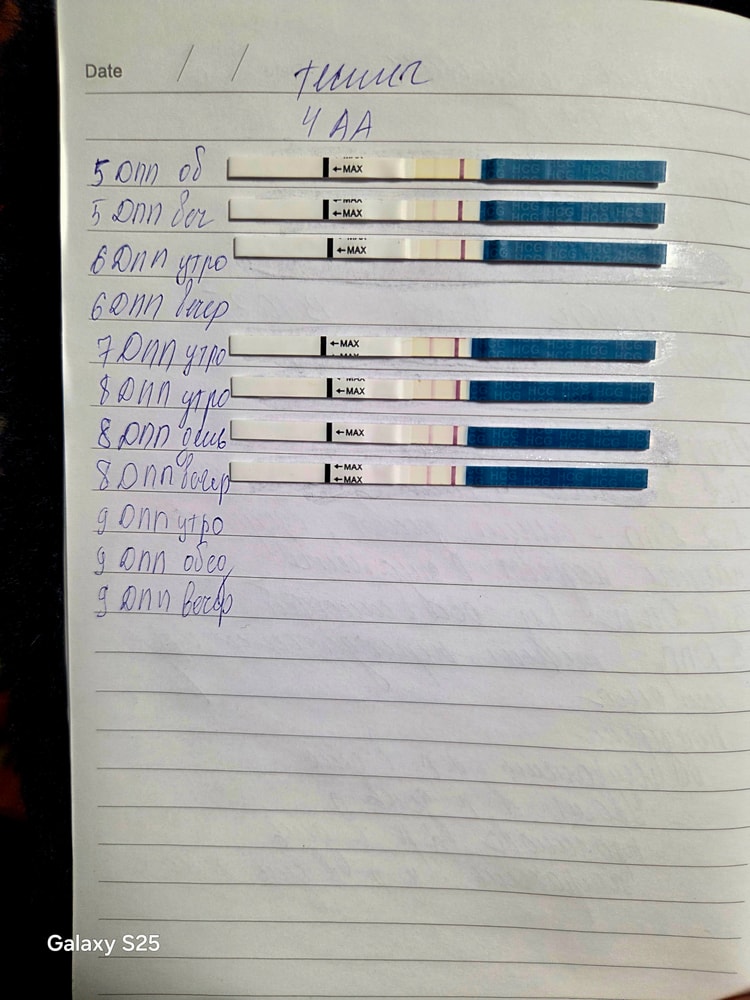 Date / /
4 AA
5 ДПП об ←MAX HCG HCG HCG HCG
5 ДПП веч ←MAX HCG HCG HCG HCG
6 ДПП утро ←MAX HCG HCG HCG HCG
6 ДПП вечер
7 ДПП утро ←MAX HCG HCG HCG
8 ДПП утро ←MAX
8 ДПП ←MAX
8 ДПП вечер ←MAX ←MAX
9 ДПП утро
9 ДПП обед
9 ДПП вечер
Galaxy S25